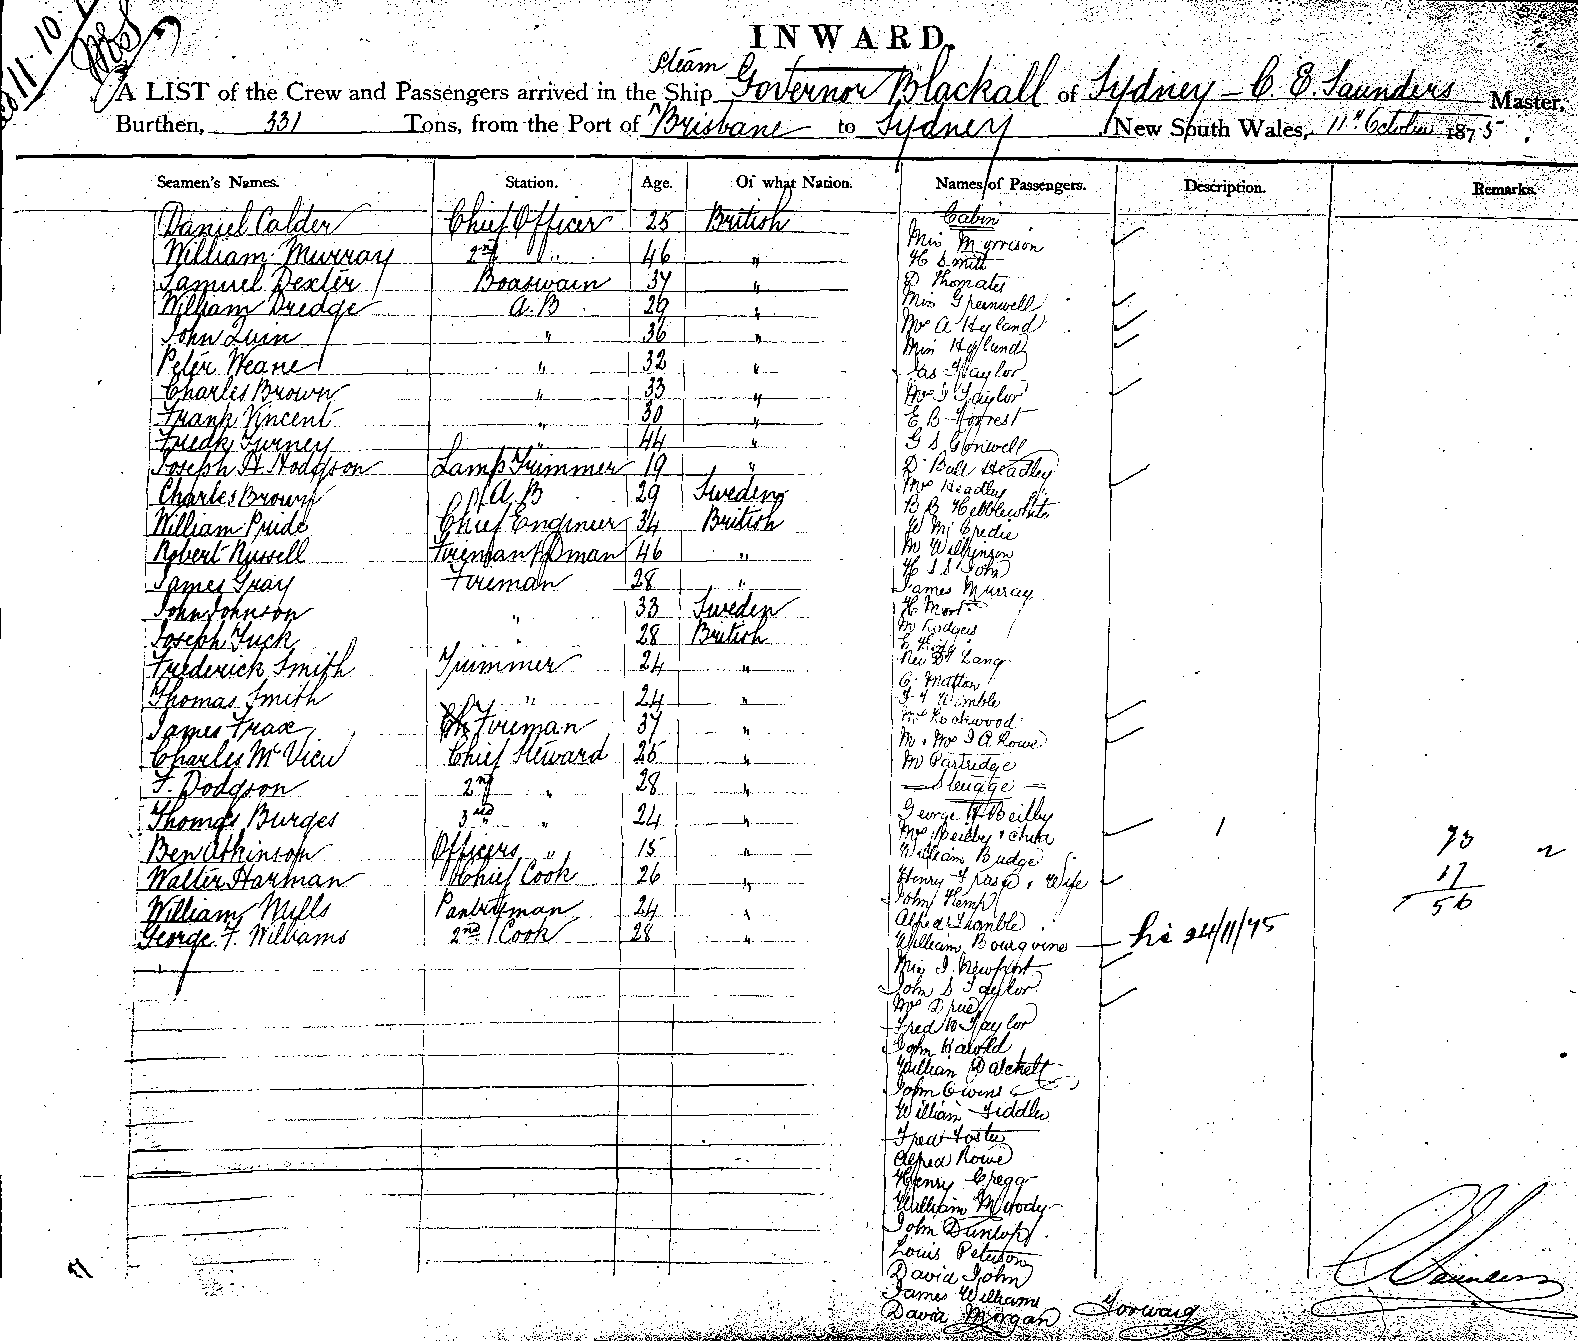 11.10
INWARD.
Steam
A LIST of the Crew and Passengers arrived in the Ship Governor Blackall of Sydney - C E Saunders Master,
Burthen, 331 Tons, from the Port of Brisbane to Sydney New South Wales, 11th October 1875
Seamen's Names. Station. Age. Of what Nation. Names of Passengers. Description. Remarks.
Daniel Calder Chief Officer 25 British
William Murray 2nd " 46 "
Samuel Dexter Boaswain 37 "
William Dredge A.B 29 "
John Quin " 36 "
Peter Weane " 32 "
Charles Brown " 33 "
Frank Vincent " 30 "
Fredk Turney " 44 "
Joseph H Hodgson Lamp Trimmer 19 "
Charles Brown A B 29 Sweden
William Pride Chief Engineer 34 British
Robert Russell Fireman & Dman 46 "
James Gray Fireman 28 "
John Johnson " 33 Sweden
Joseph Tuck " 28 British
Frederick Smith Trimmer 24 "
Thomas Smith " 24 "
James Fraser Fireman 37 "
Charles McView Chief Steward 25 "
F. Dodgson 2nd " 28 "
Thomas Burges 3rd " 24 "
Ben Atkinson Officers " 15 "
Walter Harman Chief Cook 26 "
William Mills Pantryman 24 "
George F. Williams 2nd Cook 28 "
Cabin
Miss Morrison
H Smith
D Thomates
Miss Greenwell
Mrs A Hyland
Miss Hyland
Jas Taylor
Mrs J Taylor
E B Forrest
G S Gonwell
D Ball Headley
Mrs Headley
B B Hebblewhite
W McCredie
Mr Wilkinson
H S St John
James Murray
H Mort
Mr Rodgers
E King
Rev Dr Lang
C Matton
F T Wimble
Mrs Rockwood
Mr & Mrs J A Rowe
Mr Partridge
Steerage
George H Beilby
Mrs Beilby & child 1
William Budge
Henry Fraser & Wife
John Kemp
Alfred Tramble
William Bourgoine his 24/11/75
Miss J. Newport
John S Taylor
Mrs Drue
Fred W Taylor
John Harold
William Datchett
John Owens
William Fiddler
Fred Foster
Alfred Rowe
Henry Gregg
William Moody
John Dunlop
Louis Peterson
David John
James Williams
David Morgan Forward
73
17
56
C E Saunders